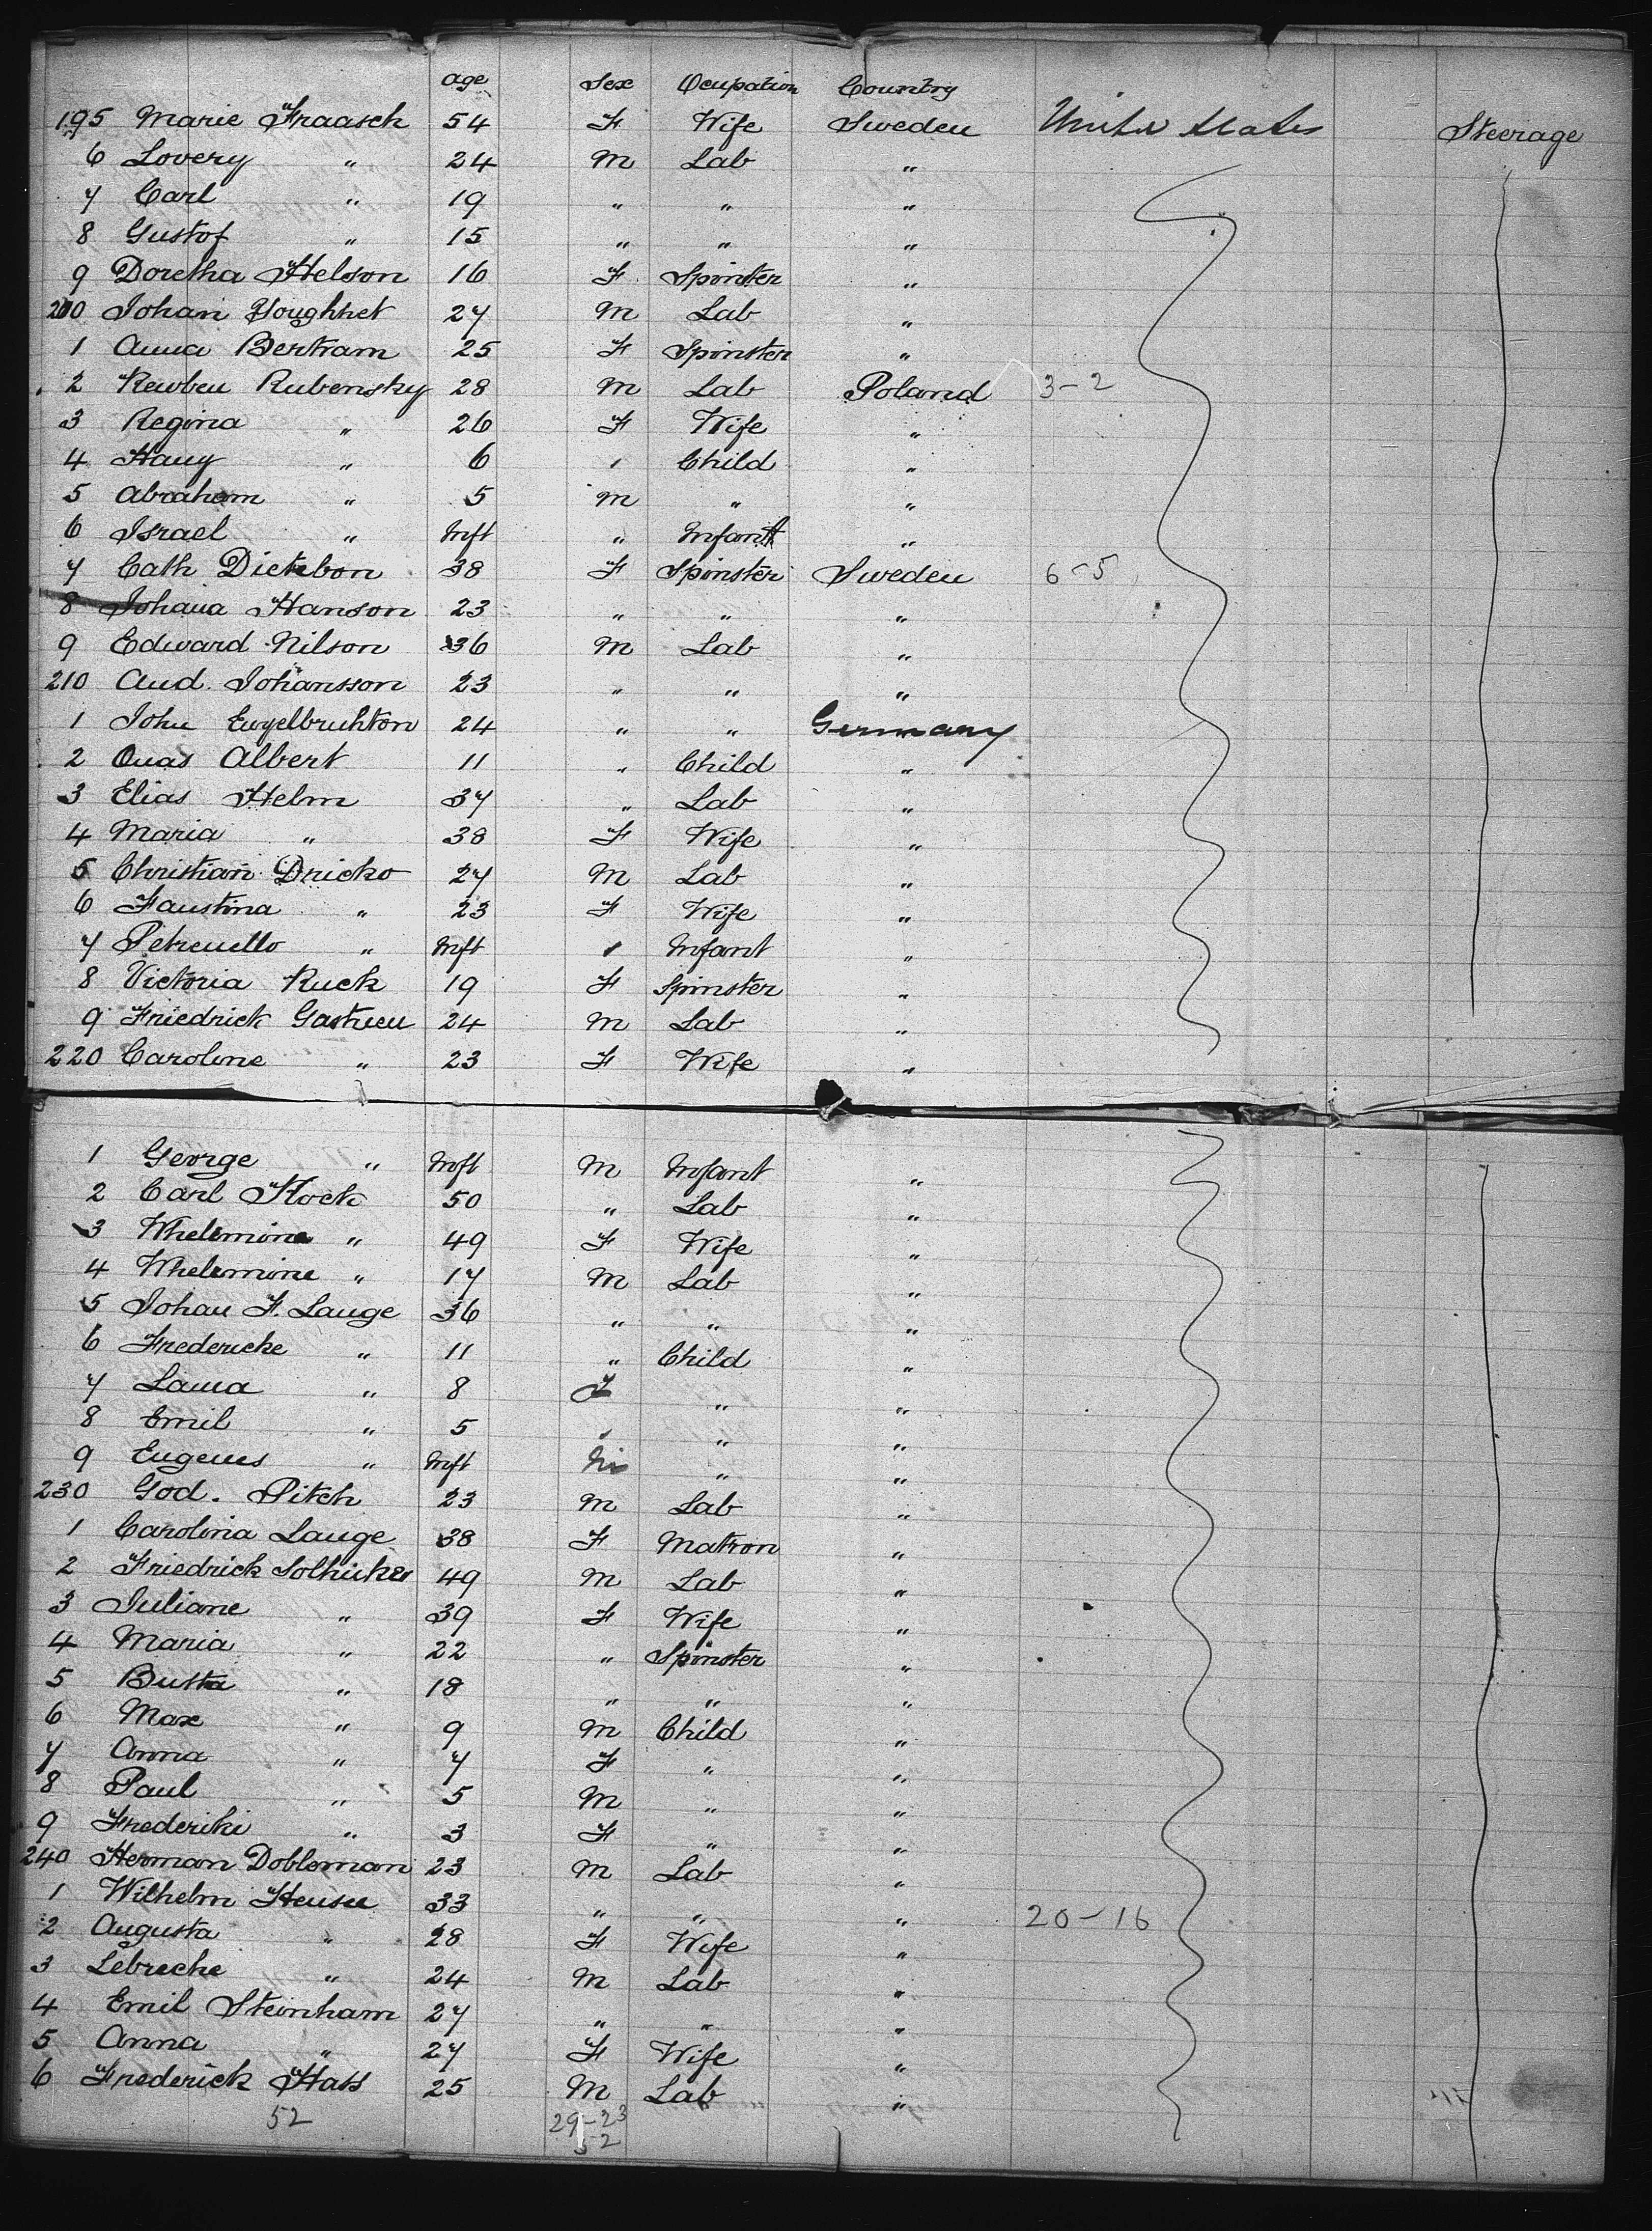 age Sex Ocupation Country
195 Marie Fraasch 54 F Wife Sweden United States Steerage
6 Lovery " 24 M Lab "
7 Carl " 19 " " "
8 Gustof " 15 " " "
9 Doretha Helson 16 F Spinster "
200 Johan Youghhet 27 M Lab "
1 Anna Bertram 25 F Spinster "
2 Rewben Rubensky 28 M Lab Poland 3-2
3 Regina " 26 F Wife "
4 Hany " 6 " Child "
5 Abraham " 5 M " "
6 Israel " Inft " Infant "
7 Cath Dickbon 38 F Spinster Sweden 6-5
8 Johana Hanson 23 " " "
9 Edward Nilson 36 M Lab "
210 Aud. Johansson 23 " " "
1 John Engelbruhton 24 " " Germany
2 Quas Albert 11 " Child "
3 Elias Helm 37 " Lab "
4 Maria " 38 F Wife "
5 Christian Dricko 27 M Lab "
6 Faustina " 23 F Wife "
7 Petruello " Inft " Infant "
8 Victoria Ruck 19 F Spinster "
9 Friedrick Gastueu 24 M Lab "
220 Caroline " 23 F Wife "
1 George " Inft M Infant "
2 Carl Kock 50 " Lab "
3 Whelemina " 49 F Wife "
4 Whelemine " 17 M Lab "
5 Johan F. Lauge 36 " " "
6 Fredericke " 11 " Child "
7 Laura " 8 F " "
8 Emil " 5 " " "
9 Eugenes " Inft M " "
230 God. Pitch 23 M Lab "
1 Carolina Lauge 38 F Matron "
2 Friedrick Solhicker 49 M Lab "
3 Juliane " 39 F Wife "
4 Maria " 22 " Spinster "
5 Busta " 18 " " "
6 Max " 9 M Child "
7 Anna " 7 F " "
8 Paul " 5 M " "
9 Frederiki " 3 F " "
240 Herman Dobloman 23 M Lab "
1 Wilhelm Hensee 33 " " " 20-16
2 Augusta " 28 F Wife "
3 Lebreche " 24 M Lab "
4 Emil Steinham 27 " " "
5 Anna " 27 F Wife "
6 Frederick Hass 25 M Lab "
52 29-23
52